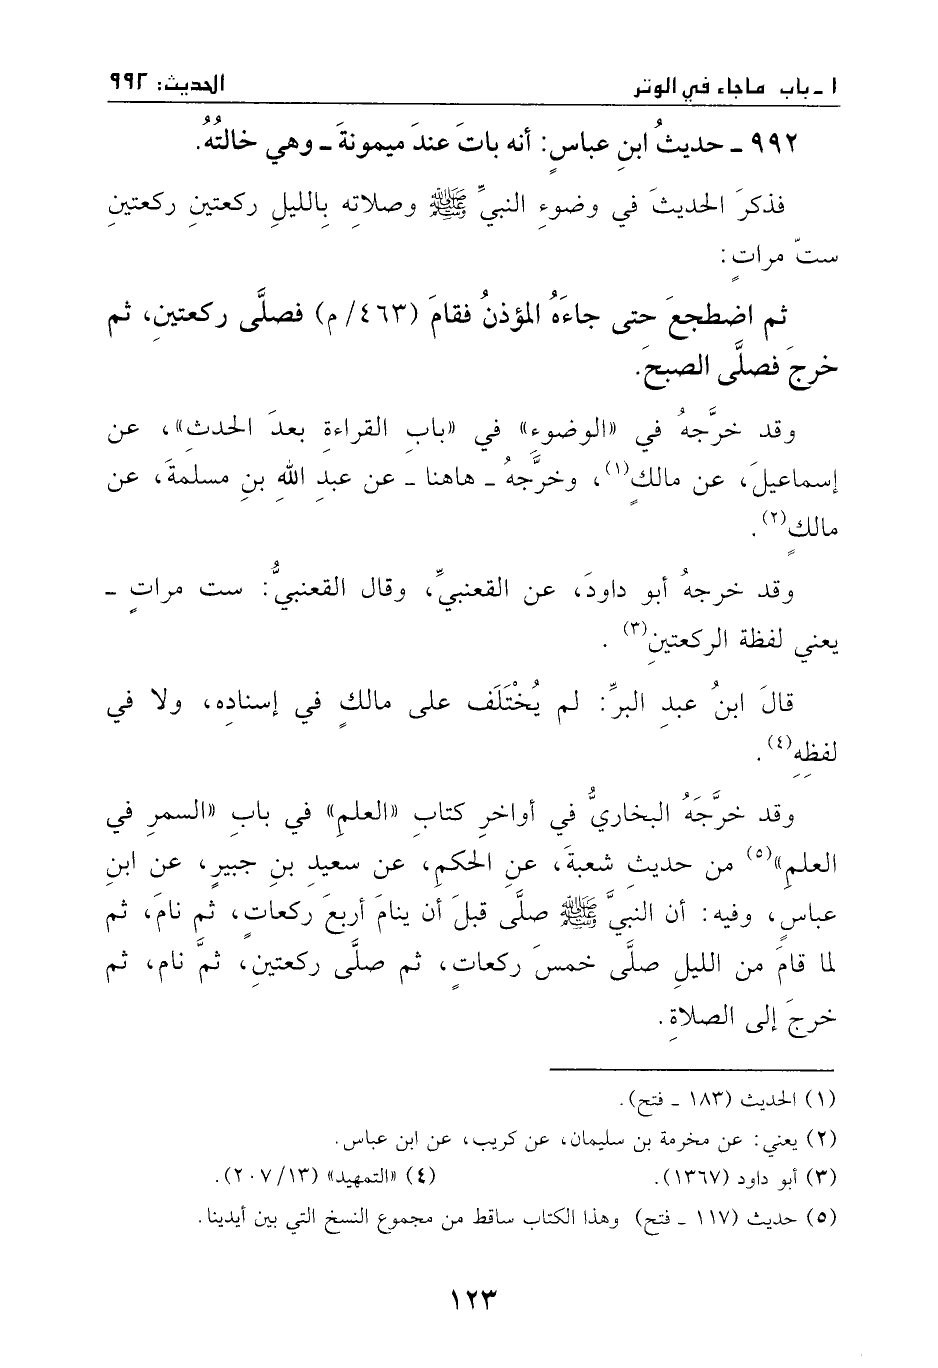 ١ ـ باب ماجاء في الوتر
الحديث: ٩٩٢
٩٩٢ ـ حديثُ ابنِ عباسٍ: أنه باتَ عندَ ميمونةَ ـ وهي خالتُهُ.
فذكرَ الحديثَ في وضوءِ النبيِّ ﷺ وصلاتِه بِالليلِ ركعتينِ ركعتينِ
ستّ مراتٍ:
ثم اضطجعَ حتى جاءَهُ المؤذنُ فقامَ (٤٦٣/ م) فصلَّى ركعتينِ، ثم
خرجَ فصلَّى الصبحَ.
وقد خرَّجهُ في «الوضوءِ» في «بابِ القراءةِ بعدَ الحدثِ»، عن
إسماعيلَ، عن مالكٍ(١)، وخرَّجهُ ـ هاهنا ـ عن عبدِ اللهِ بنِ مسلمةَ، عن
مالكٍ(٢).
وقد خرجهُ أبو داودَ، عن القعنبيِّ، وقال القعنبيُّ: ست مراتٍ ـ
يعني لفظة الركعتينِ(٣).
قالَ ابنُ عبدِ البرِّ: لم يُخْتَلَف على مالكٍ في إسنادِه، ولا في
لفظِهِ(٤).
وقد خرَّجَهُ البخاريُّ في أواخرِ كتابِ «العلمِ» في بابِ «السمرِ في
العلمِ»(٥) من حديثِ شعبةَ، عنِ الحكمِ، عن سعيدِ بنِ جبيرٍ، عن ابنِ
عباسٍ، وفيه: أن النبيَّ ﷺ صلَّى قبلَ أن ينامَ أربعَ ركعاتٍ، ثم نامَ، ثم
لما قامَ من الليلِ صلَّى خمسَ ركعاتٍ، ثم صلَّى ركعتينِ، ثمَّ نام، ثم
خرجَ إلى الصلاةِ.
(١) الحديث (١٨٣ ـ فتح).
(٢) يعني: عن مخرمة بن سليمان، عن كريب، عن ابن عباس.
(٣) أبو داود (١٣٦٧).
(٤) «التمهيد» (٢٠٧/١٣).
(٥) حديث (١١٧ ـ فتح) وهذا الكتاب ساقط من مجموع النسخ التي بين أيدينا.
١٢٣